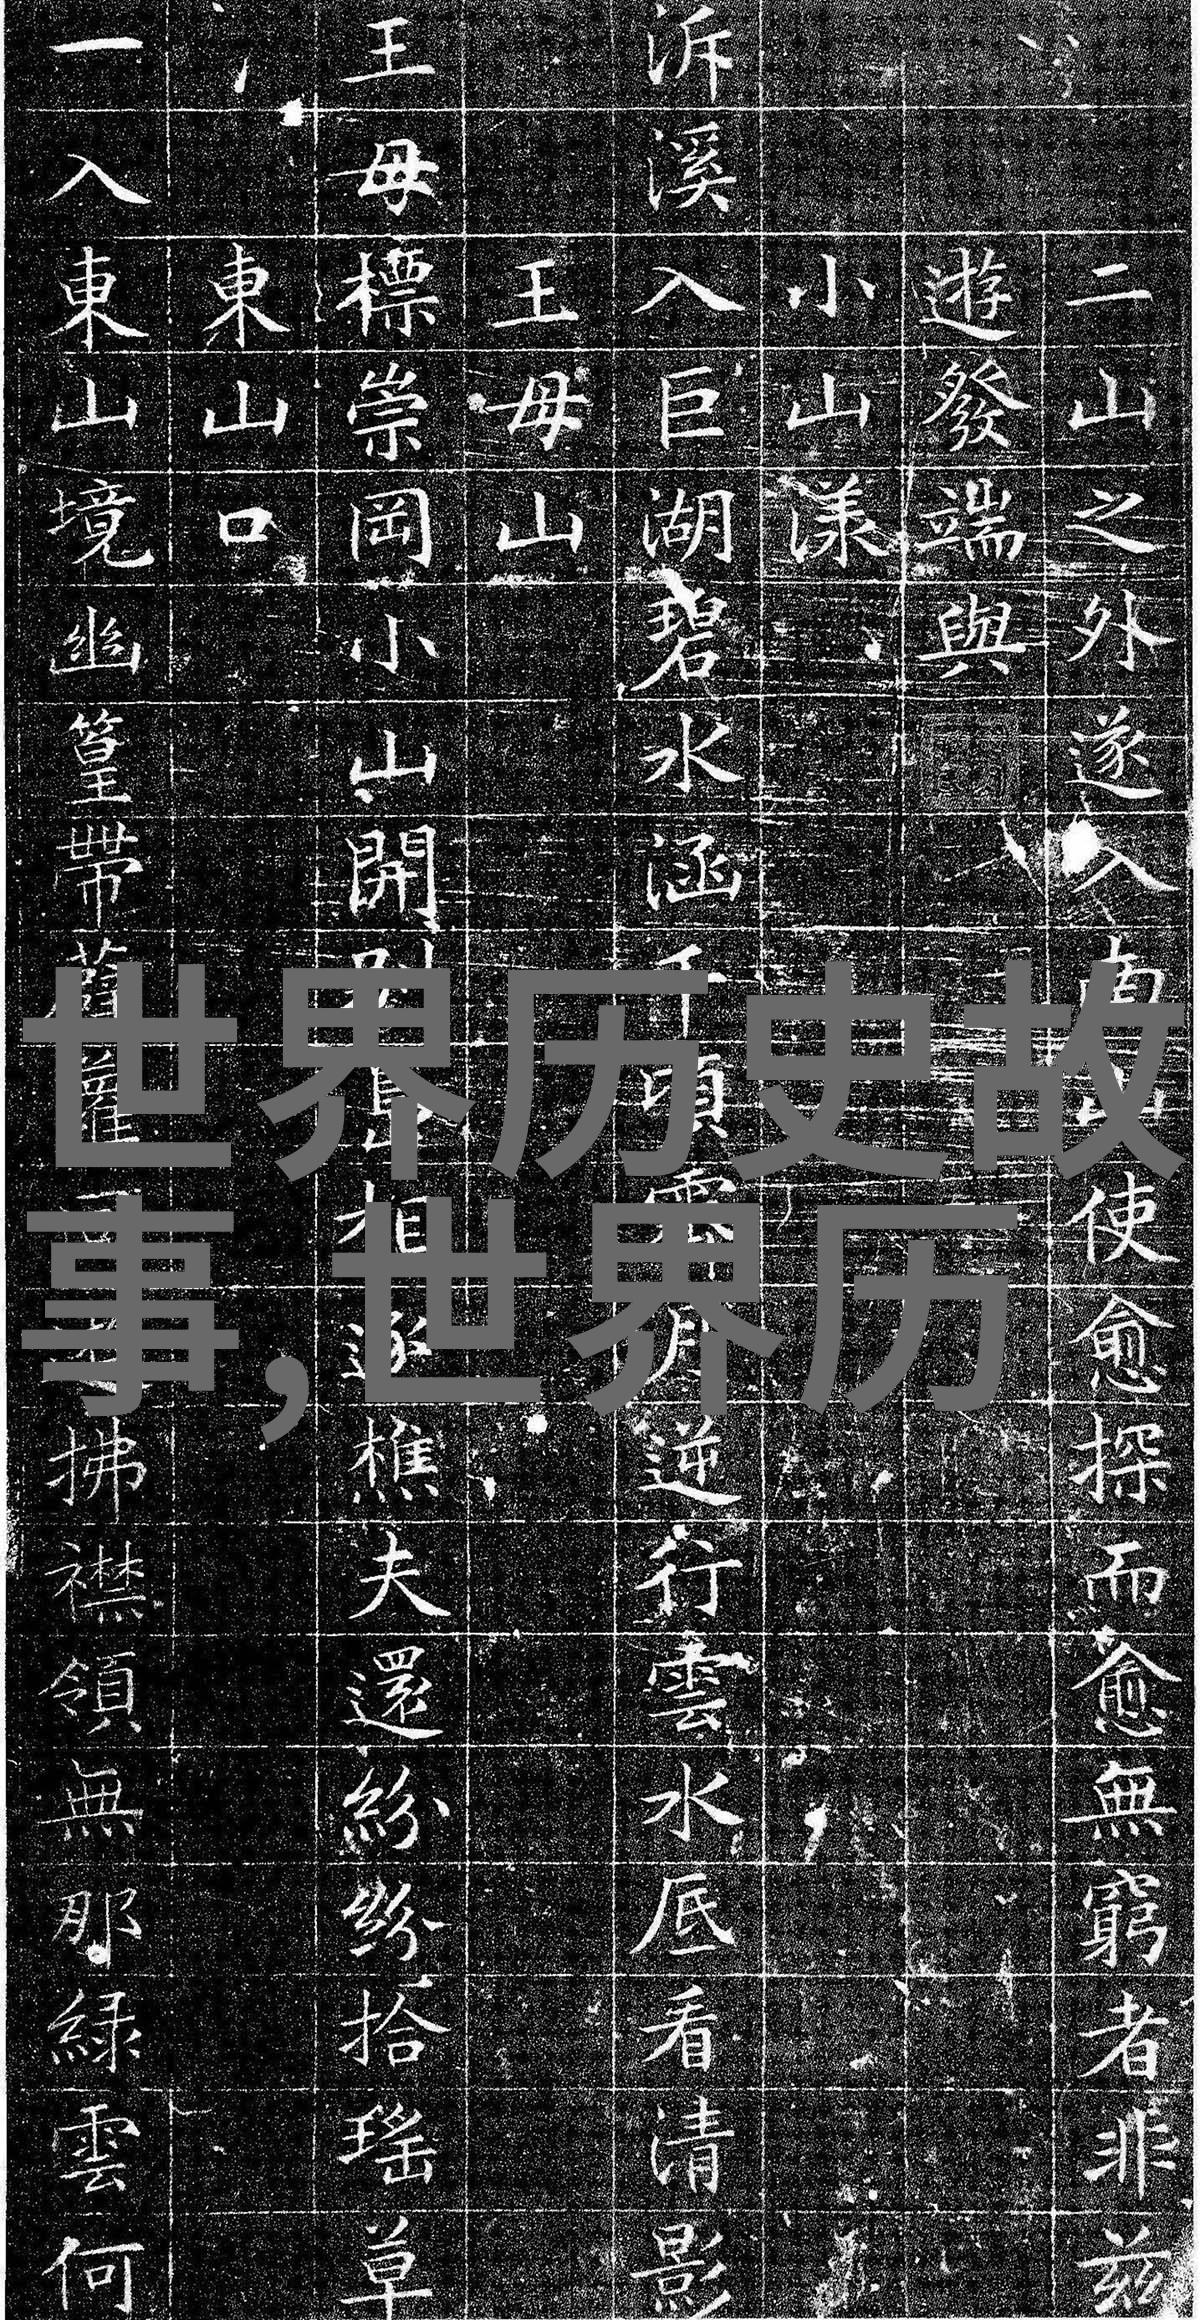 二山之外遂入南山使愈探而愈無窮者非茲
遊發端與
小山漾
泝溪入巨湖碧水涵千頃雲月逆行雲水底看清影
王毋山
王毋標崇岡小山開別相逐樵夫還紛紛拾瑤草
東山口
一入東山境幽篁帶蘿拂襟領無那綠雲何
世界历史故
事,世界历